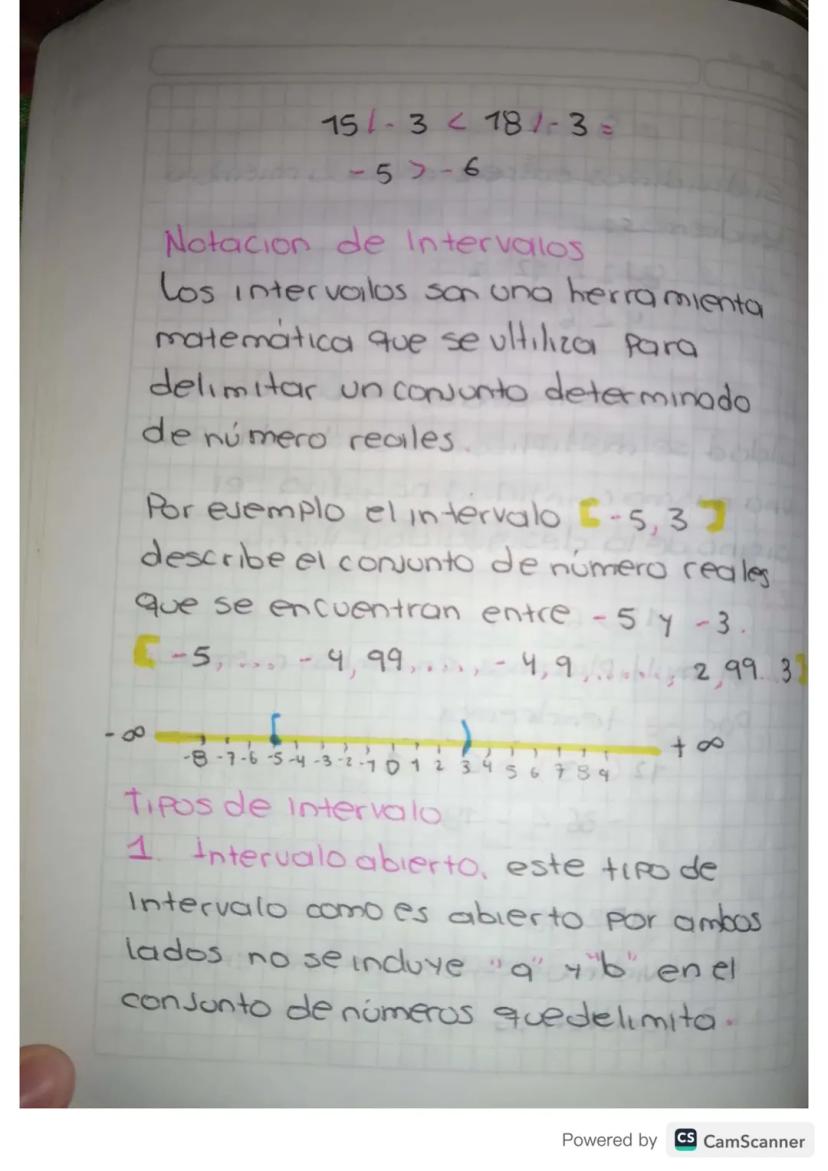 15 / - 3 < 18 / - 3 =
- 5 > - 6
Notacion de Intervalos
Los intervalos son una herramienta
matemática que se ultiliza para
delimitar un conjunto determinado
de número reales.
Por ejemplo el intervalo [-5, 3]
describe el conjunto de número reales
que se encuentran entre - 5 y -3.
[-5, .... - 4,99, ...., - 4,9 ,......, 2,99.. 3]
- ∞ [ ) + ∞
-8 -7 -6 -5 -4 -3 -2 -1 0 1 2 3 4 5 6 7 8 9
Tipos de intervalo
1. Intervalo abierto, este tipo de
Intervalo como es abierto por ambos
lados no se incluye "a" y "b" en el
conjunto de números que delimita.
Powered by CS CamScanner